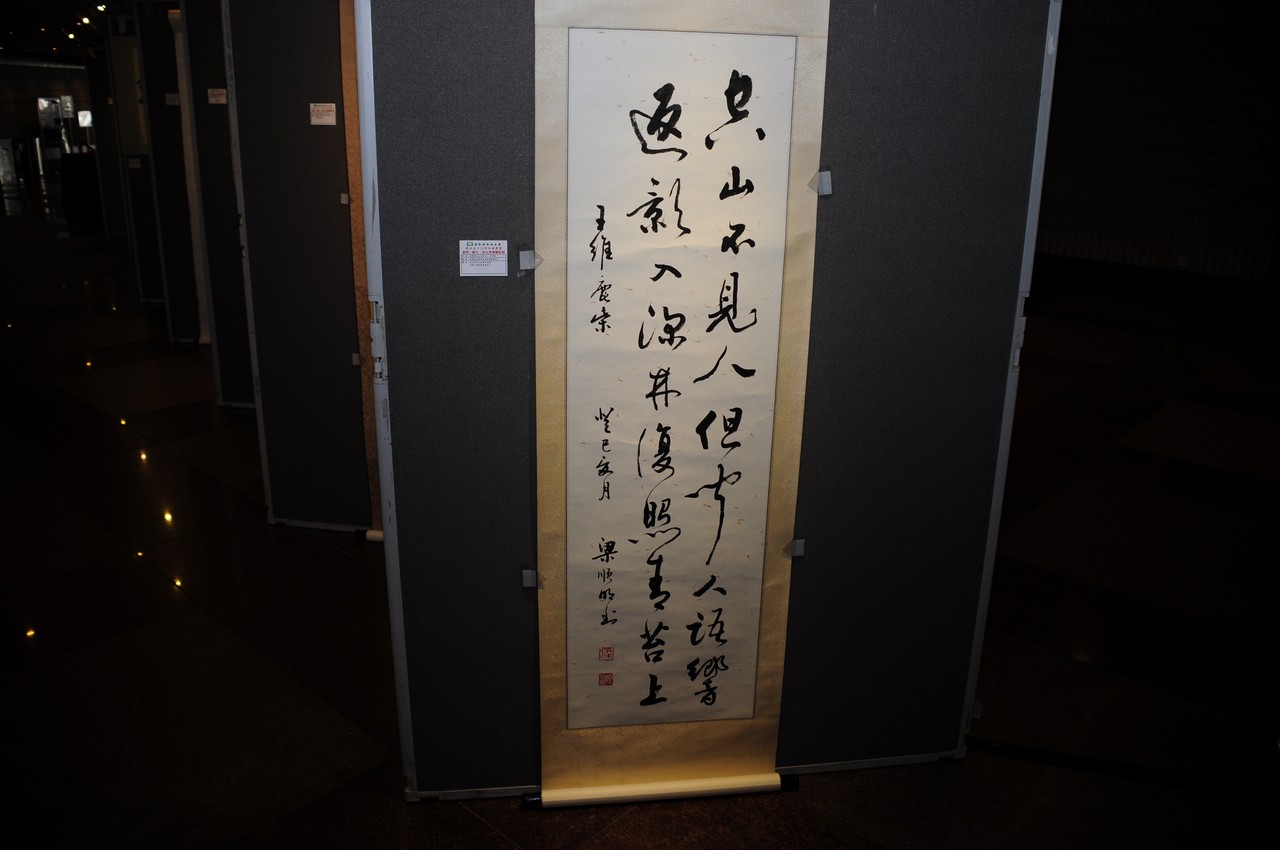 空山不見人但聞人語響
返影入深林復照青苔上
王維鹿柴
癸巳夏月
梁順明書